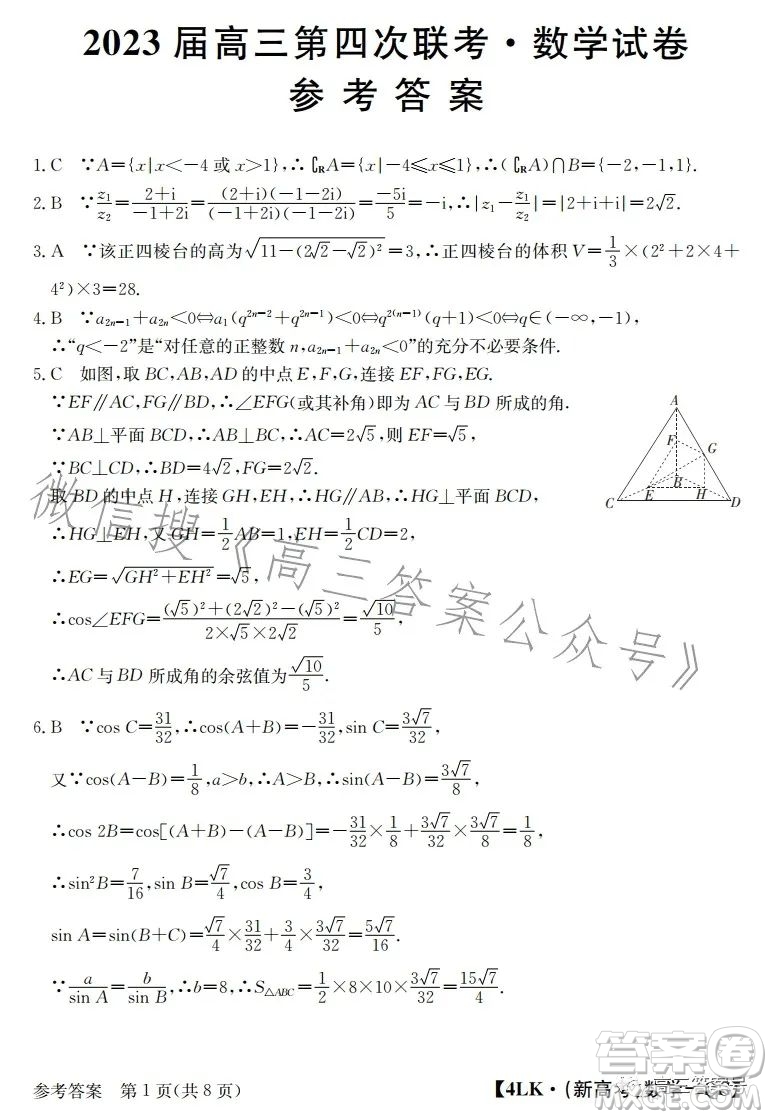 2023 届高三第四次联考·数学试卷
参考答案
1. C ∵A={x|x<-4 或 x>1},∴∁RA={x|-4≤x≤1},∴(∁RA)∩B={-2,-1,1}.
2. B ∵z₁/z₂=(2+i)/(-1+2i)=(2+i)(-1-2i)/((-1+2i)(-1-2i))=-5i/5=-i,∴|z₁-z₁/z₂|=|2+i+i|=2√2.
3. A ∵该正四棱台的高为√(11-(2√2-√2)²)=3,∴正四棱台的体积 V=1/3×(2²+2×4+
4²)×3=28.
4. B ∵a₂ₙ₋₁+a₂ₙ<0⇔a₁(q²ⁿ⁻²+q²ⁿ⁻¹)<0⇔q²⁽ⁿ⁻¹⁾(q+1)<0⇔q∈(-∞,-1),
∴“q<-2”是“对任意的正整数 n,a₂ₙ₋₁+a₂ₙ<0”的充分不必要条件.
5. C 如图,取 BC,AB,AD 的中点 E,F,G,连接 EF,FG,EG.
∵EF∥AC,FG∥BD,∴∠EFG(或其补角)即为 AC 与 BD 所成的角.
∵AB⊥平面 BCD,∴AB⊥BC,∴AC=2√5,则 EF=√5,
∵BC⊥CD,∴BD=4√2,FG=2√2.
取 BD 的中点 H,连接 GH,EH,∴HG∥AB,∴HG⊥平面 BCD,
∴HG⊥EH,又 GH=1/2AB=1,EH=1/2CD=2,
∴EG=√(GH²+EH²)=√5,
∴cos∠EFG=((√5)²+(2√2)²-(√5)²)/(2×√5×2√2)=√10/5,
∴AC 与 BD 所成角的余弦值为√10/5.
A
F
G
B
C
E
H
D
6. B ∵cos C=31/32,∴cos(A+B)=-31/32,sin C=3√7/32,
又∵cos(A-B)=1/8,a>b,∴A>B,∴sin(A-B)=3√7/8,
∴cos 2B=cos[(A+B)-(A-B)]=-31/32×1/8+3√7/32×3√7/8=1/8,
∴sin²B=7/16,sin B=√7/4,cos B=3/4,
sin A=sin(B+C)=√7/4×31/32+3/4×3√7/32=5√7/16.
∵a/sin A=b/sin B,∴b=8,S△ABC=1/2×8×10×3√7/32=15√7/4.
微信搜《高三答案公众号》
参考答案 第 1 页(共 8 页)
【4LK·(新高考)数学